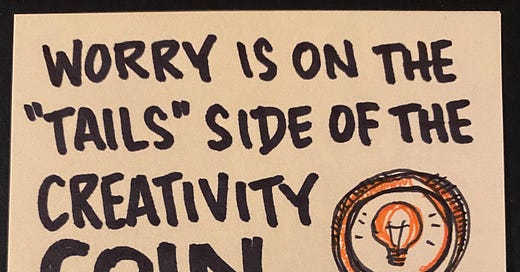 WORRY IS ON THE
"TAILS" SIDE OF THE
CREATIVITY
COIN